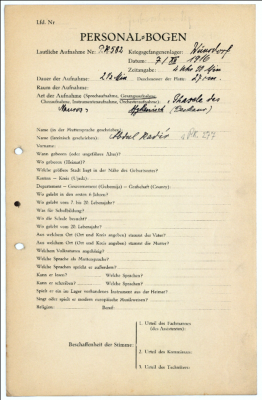 Lfd. Nr.
PERSONAL-BOGEN
Lautliche Aufnahme Nr.: PK 582 Kriegsgefangenenlager: Wünsdorf
Datum: 7/XII 1916
Zeitangabe: 4 Uhr 20 Min
Dauer der Aufnahme: 2 Min Durchmesser der Platte: 27 cm
Raum der Aufnahme:
Art der Aufnahme (Sprechaufnahme, Gesangsaufnahme,
Choraufnahme, Instrumentenaufnahme, Orchesteraufnahme):
Name (in der Muttersprache geschrieben):
Name (lateinisch geschrieben): Abdul Kadir
Vorname:
Wann geboren (oder ungefähres Alter)?
Wo geboren (Heimat)?
Welche größere Stadt liegt in der Nähe des Geburtsortes?
Kanton — Kreis (Ujedz):
Departement — Gouvernement (Gubernija) — Grafschaft (County):
Wo gelebt in den ersten 6 Jahren?
Wo gelebt vom 7. bis 20. Lebensjahr?
Was für Schulbildung?
Wo die Schule besucht?
Wo gelebt vom 20. Lebensjahr?
Aus welchem Ort (Ort und Kreis angeben) stammt der Vater?
Aus welchem Ort (Ort und Kreis angeben) stammt die Mutter?
Welchem Volksstamm angehörig?
Welche Sprache als Muttersprache?
Welche Sprachen spricht er außerdem?
Kann er lesen? Welche Sprachen?
Kann er schreiben? Welche Sprachen?
Spielt er ein im Lager vorhandenes Instrument aus der Heimat?
Singt oder spielt er modern europäische Musikweisen?
Religion: Beruf:
Beschaffenheit der Stimme:
1. Urteil des Fachmannes
(des Assistenten):
2. Urteil des Kommissars:
3. Urteil des Technikers: